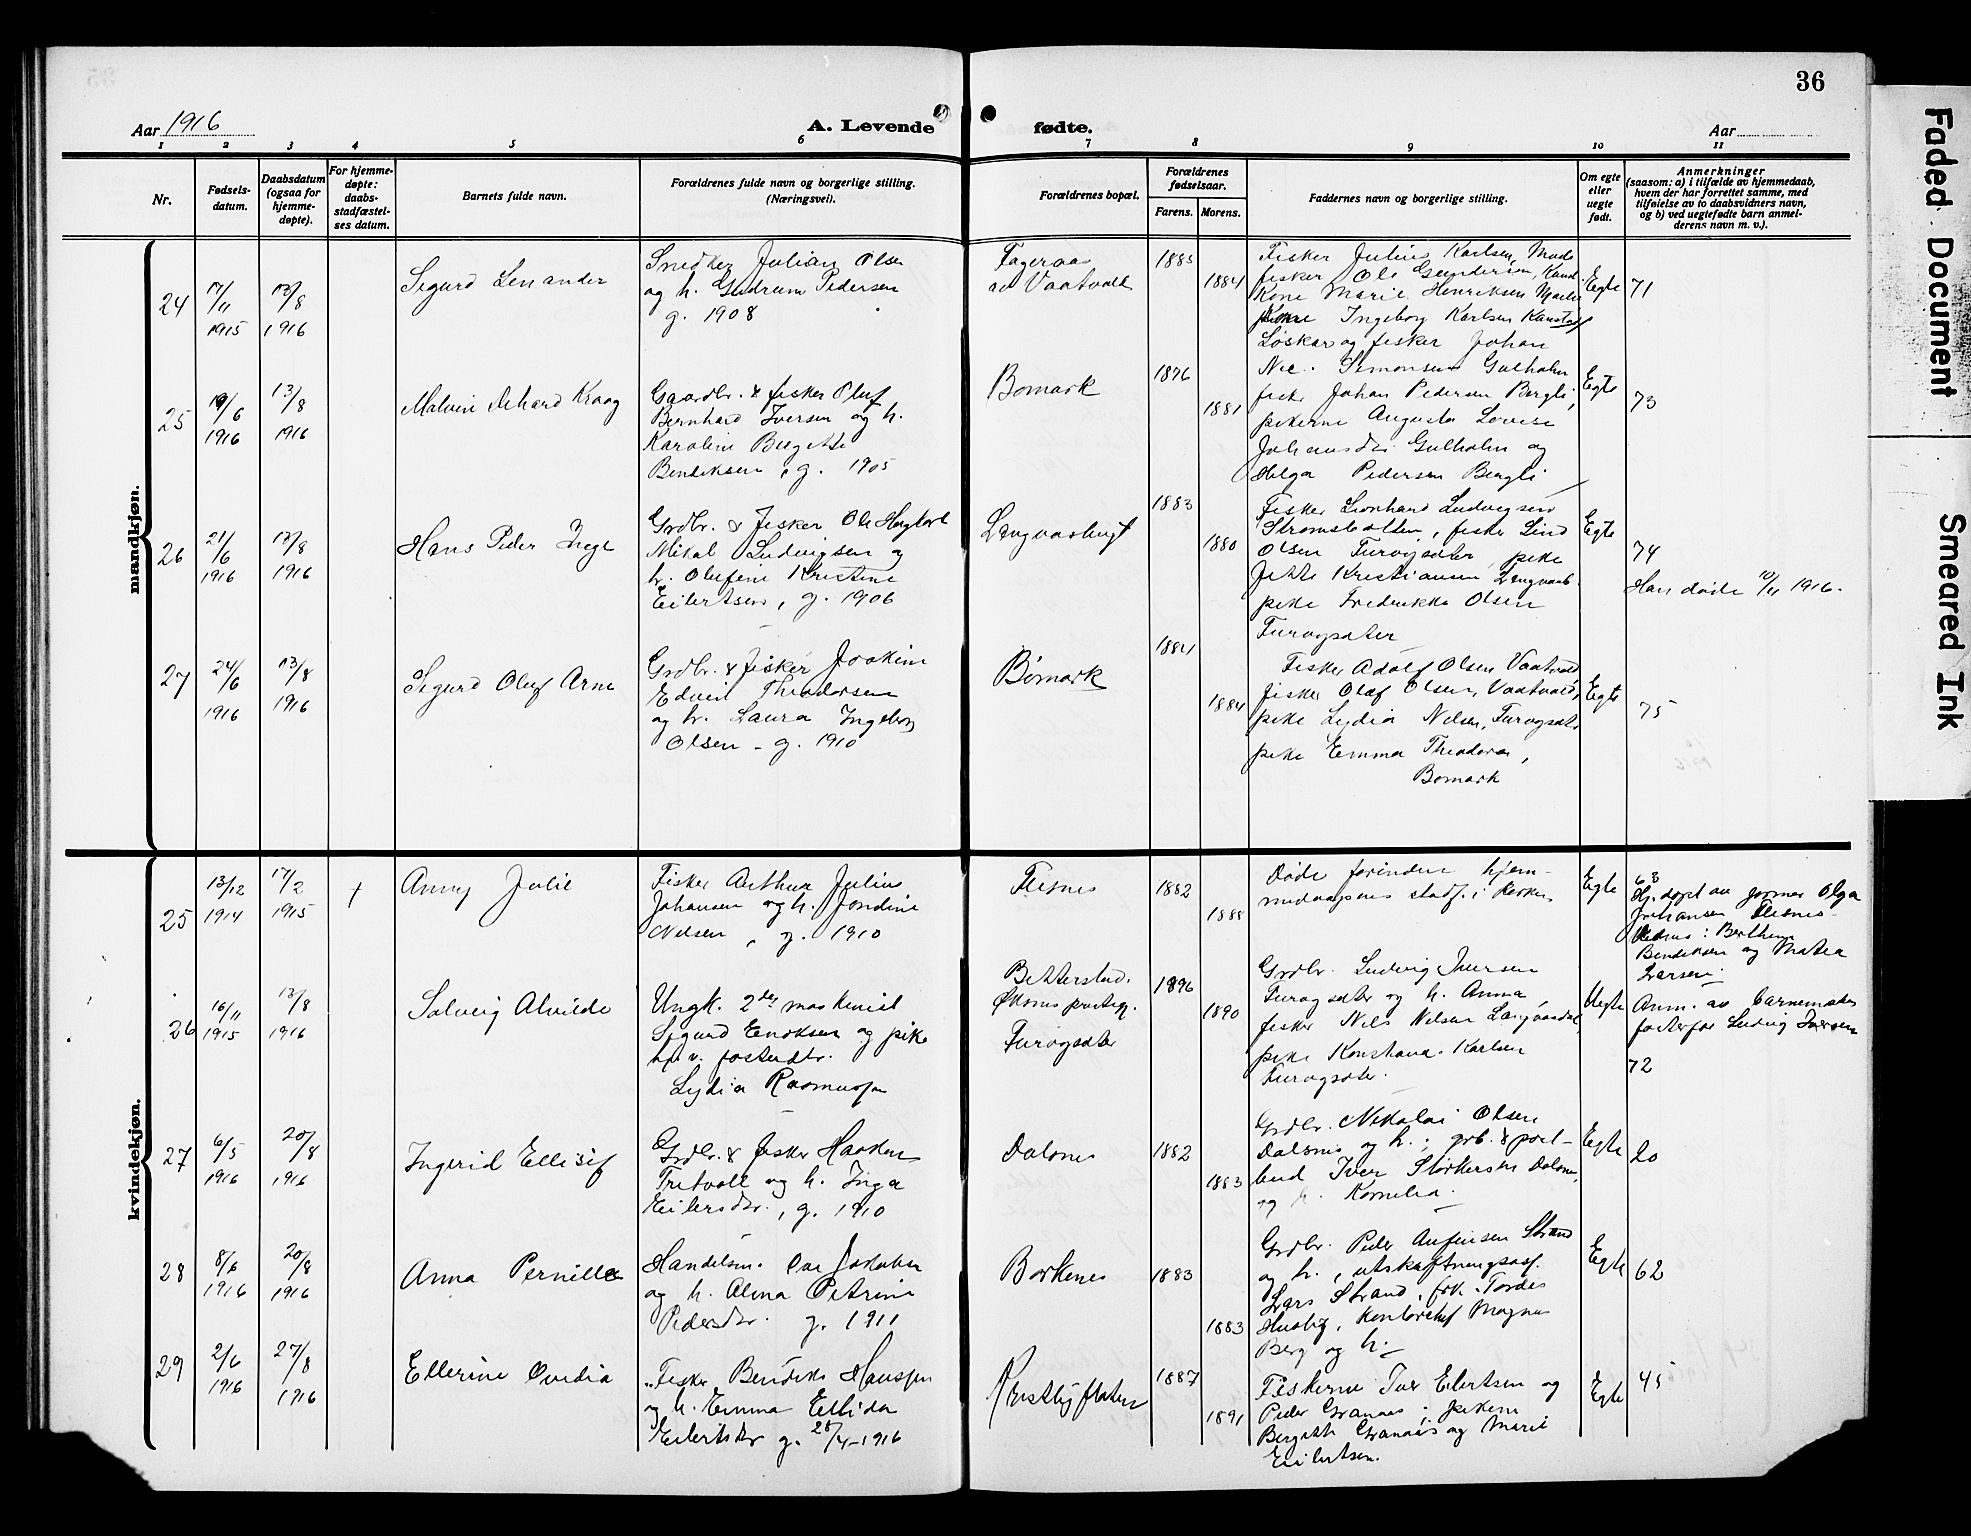 36
Aar 1916
A. Levende fødte.
Aar
1 2 3 4 5 6 7 8 9 10 11
Nr.
Fødsels-
datum.
Daabsdatum
(ogsaa for
hjemme-
døpte).
For hjemme-
døpte:
daabs-
stadfæstel-
ses datum.
Barnets fulde navn.
Forældrenes fulde navn og borgerlige stilling.
(Næringsvei).
Forældrenes bopæl.
Forældrenes
fødselsaar.
Farens. Morens.
Faddernes navn og borgerlige stilling.
Om egte
eller
uegte
født.
Anmerkninger
(saasom: a) i tilfælde av hjemmedaab,
hvem der har forrettet samme, med
tilføielse av to daabsvidners navn,
og b) ved uegtefødte barn anmel-
derens navn m. v.).
mandkjøn.
24
17/11
1915
13/8
1916
Sigurd Lenander
Snedker Julian Olsen
og h. Gudrum Pedersen
g. 1908
Fageraas
1885
1884
Fisker Julius Karlsen,
fisker Ole Gundersen,
Kone Marie Henriksen
Ingeborg Karlsen Kanstad
og fisker Johan
Egte
71
25
19/6
1916
13/8
1916
Malvin Kraag
Gaardbr. & fisker Oluf
Bernhard Iversen og h.
Karoline Bergitte
Bendiksen, g. 1905
Bømark
1876
1881
Simonsen Gulholm
fisker Johan Pedersen Bergli,
pikerne Augusta Lovise
Johansdr. Gulholm og
Helga Pedersen Bergli
Egte
73
26
21/6
1916
13/8
1916
Hans Peder Inge
Grdbr. & fisker Ole
Mikal Ludvigsen og
h. Olufine Kristine
Eilertsen, g. 1906
1883
1880
Fisker Leonhard Ludvigsen
fisker Lind
Olsen Furøgsæter, pike
Jette Kristiansen
pike Fredrikke Olsen
Furøgsæter
Egte
74
Han døde 10/11 1916.
27
24/6
1916
13/8
1916
Sigurd Oluf Arne
Grdbr. & fisker Joakim
Edvin Theodorsen
og h. Laura Ingeborg
Olsen - g. 1910
Bømark
1884
1884
Fisker Adolf Olsen Vaatvold,
fisker Olaf Olsen, Vaatvold,
pike Lydia Nilsen, Furøgsæter
pike Emma Theodora,
Bømark
Egte
75
kvindekjøn.
25
13/12
1914
17/2
1915
+
Anny Julie
Fisker Arthur Julius
Johansen og h. Jondine
Nilsen, g. 1910
Flesnes
1882
1888
Døde forinden hjem-
medaapens stadf. i kirken
Egte
63
Hj. døpt av jormor Olga
Johansen Flesnes
Bendiksen og Matea
Larsen
26
16/11
1915
13/8
1916
Solveig Alvilde
Ungk. 2den maskinist
Sigurd Enoksen og pike
Lydia Rasmussen
Furøgsæter
1896
1890
Grdbr. Ludvig Iversen
Furøgsæter og h. Anna,
fisker Nils Nilsen
pike Konstana Karlsen
Furøgsæter.
Uegte
Anm. av barnemoder
fosterfar Ludvig Iversen
72
27
6/5
1916
20/8
1916
Ingerid Ellisif
Grdbr. & fisker Haakon
Tretvoll og h. Inga
Eilersdr., g. 1910
Dalsnes
1882
1883
Grdbr. Nikolai Olsen
Dalsnes og h.; grb. & post-
bud Iver Størkersen Dalsnes,
og h. Kornelia.
Egte
20
28
8/6
1916
20/8
1916
Anna Pernille
Handelsm. Ove Jakobsen
og h. Alma Petrine
Pedersdr. g. 1911
Borkenes
1883
1883
Grdbr. Peder Anfinsen Strand
og h., utskiftningsass.
Lars Strand, frk. Tordis
Husby, kontorchef Magnus
Berg og h.
Egte
62
29
2/6
1916
27/8
1916
Ellerine Ovedia
Fisker Bendiks Hanssen
og h. Emma Ellida
Eilertsdr g. 28/4-1916
1887
1891
Fiskerne Iver Eilertsen og
Peder Granaas; pikene
Bergith Granaas og Marie
Eilertsen.
Egte
45
Faded Document
Smeared Ink